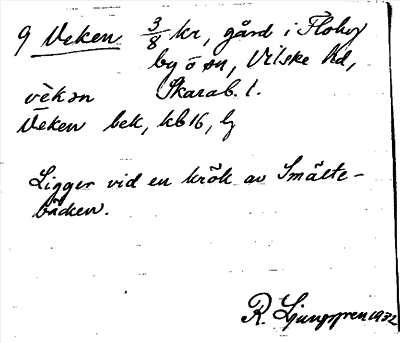 9 Veken 3/8 kr, gård i Floby
by ö sn, Vilske hd,
vèkən Skarab. l.
Veken bek, kb 16, lj
Ligger vid en krök av Smälte-
bäcken.
R. Ljunggren 1932